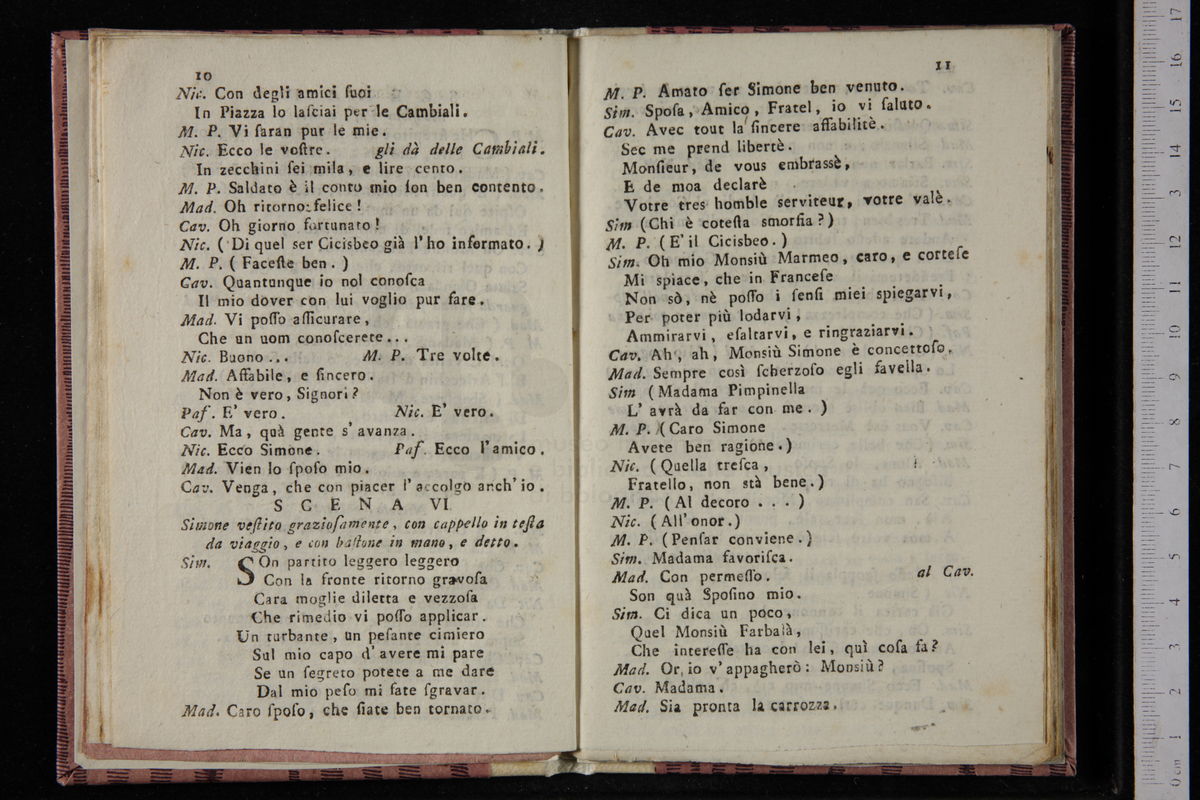 10
Nic. Con degli amici ſuoi
In Piazza lo laſciai per le Cambiali.
M. P. Vi ſaran pur le mie.
Nic. Ecco le voſtre. gli dà delle Cambiali.
In zecchini ſei mila, e lire cento.
M. P. Saldato è il conto mio ſon ben contento.
Mad. Oh ritorno felice!
Cav. Oh giorno fortunato!
Nic. (Di quel ser Cicisbeo già l'ho informato.)
M. P. (Faceſte ben.)
Cav. Quantunque io nol conoſca
Il mio dover con lui voglio pur fare.
Mad. Vi poſſo aſſicurare,
Che un uom conoſcerete...
Nic. Buono... M. P. Tre volte.
Mad. Affabile, e ſincero.
Non è vero, Signori?
Paſ. E' vero. Nic. E' vero.
Cav. Ma, quà gente s'avanza.
Nic. Ecco Simone. Paſ. Ecco l'amico.
Mad. Vien lo ſpoſo mio.
Cav. Venga, che con piacer l'accolgo anch'io.
SCENA VI.
Simone veſtito grazioſamente, con cappello in teſta
da viaggio, e con baſtone in mano, e detto.
Sim. SOn partito leggero leggero
Con la fronte ritorno gravoſa
Cara moglie diletta e vezzoſa
Che rimedio vi poſſo applicar.
Un turbante, un peſante cimiero
Sul mio capo d'avere mi pare
Se un ſegreto potete a me dare
Dal mio peſo mi fate ſgravar.
Mad. Caro ſpoſo, che ſiate ben tornato.
11
M. P. Amato ſer Simone ben venuto.
Sim. Spoſa, Amico, Fratel, io vi ſaluto.
Cav. Avec tout la ſincere affabilitè.
Sec me prend libertè.
Monſieur, de vous embrassè,
E de moa declarè
Votre tres homble serviteur, votre valè.
Sim (Chi è coteſta smorfia?)
M. P. (E' il Cicisbeo.)
Sim. Oh mio Monsiù Marmeo, caro, e corteſe
Mi spiace, che in Franceſe
Non sò, nè poſſo i ſenſi miei spiegarvi,
Per poter più lodarvi,
Ammirarvi, eſaltarvi, e ringraziarvi.
Cav. Ah, ah, Monsiù Simone è concettoſo.
Mad. Sempre così ſcherzoſo egli favella.
Sim (Madama Pimpinella
L'avrà da far con me.)
M. P. (Caro Simone
Avete ben ragione.)
Nic. (Quella treſca,
Fratello, non stà bene.)
M. P. (Al decoro...)
Nic. (All'onor.)
M. P. (Penſar conviene.)
Sim. Madama favoriſca.
Mad. Con permeſſo. al Cav.
Son quà Spoſino mio.
Sim. Ci dica un poco,
Quel Monsiù Farbalà,
Che intereſſe ha con lei, quì coſa fa?
Mad. Or, io v'appagherò: Monsiù?
Cav. Madama.
Mad. Sia pronta la carrozza.